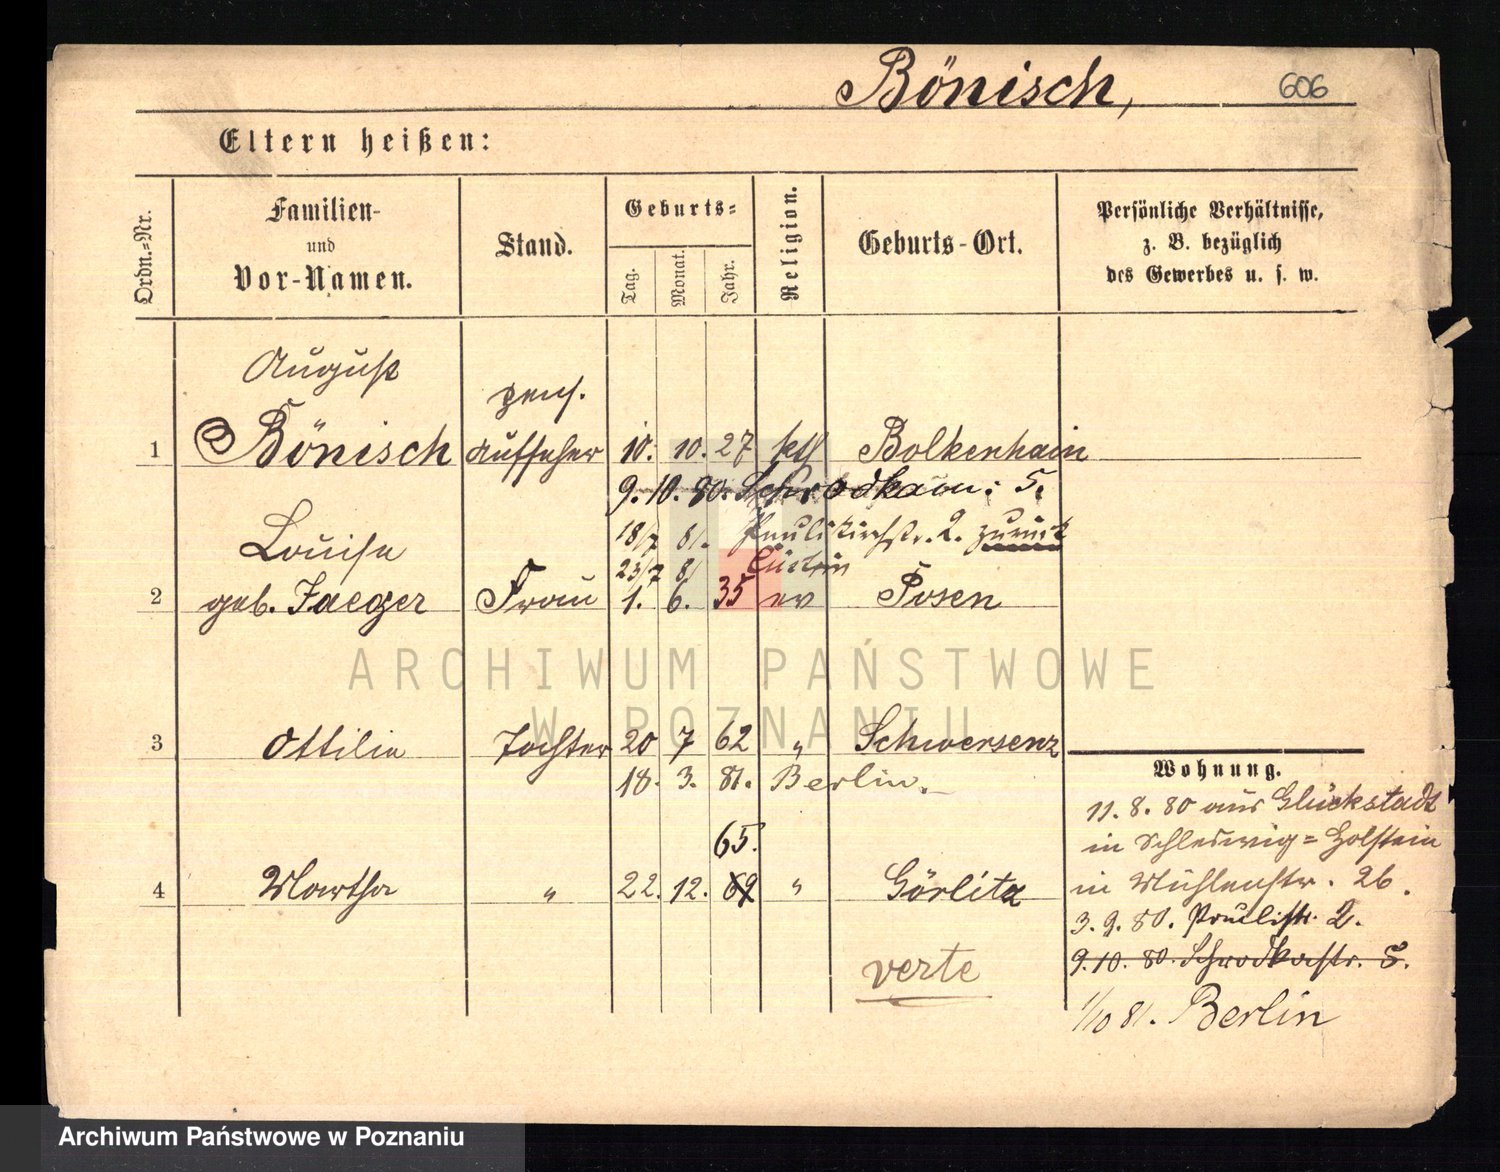 Bönisch,
606
Eltern heißen:
Ordn.-Nr.
Familien-
und
Vor-Namen.
Stand.
Geburts-
Tag.
Monat.
Jahr.
Religion.
Geburts-Ort.
Persönliche Verhältnisse,
z. B. bezüglich
des Gewerbes u. s. w.
August
pens.
1 Bönisch Aufseher 10. 10. 27 ktl Bolkenhain
9. 10. 80. Schrodkaer: 5.
18/7 81. Paulikirchstr. 2. zurück
Louise
23/7 81 Cüstrin
2 geb. Jaeger Frau 1. 6. 35 ev Posen
ARCHIWUM PAŃSTWOWE
W POZNANIU
3 Ottilie Tochter 20 7 62 " Schwersenz
18. 3. 81. Berlin.
65.
4 Martha " 22. 12. 69 " Görlitz
verte
Wohnung.
11. 8. 80 aus Glückstadt
in Schleswig=Holstein
in Mühlenstr. 26.
3. 9. 80. Paulistr. 2.
9. 10. 80. Schrodkastr. 5.
1/10 81. Berlin
Archiwum Państwowe w Poznaniu